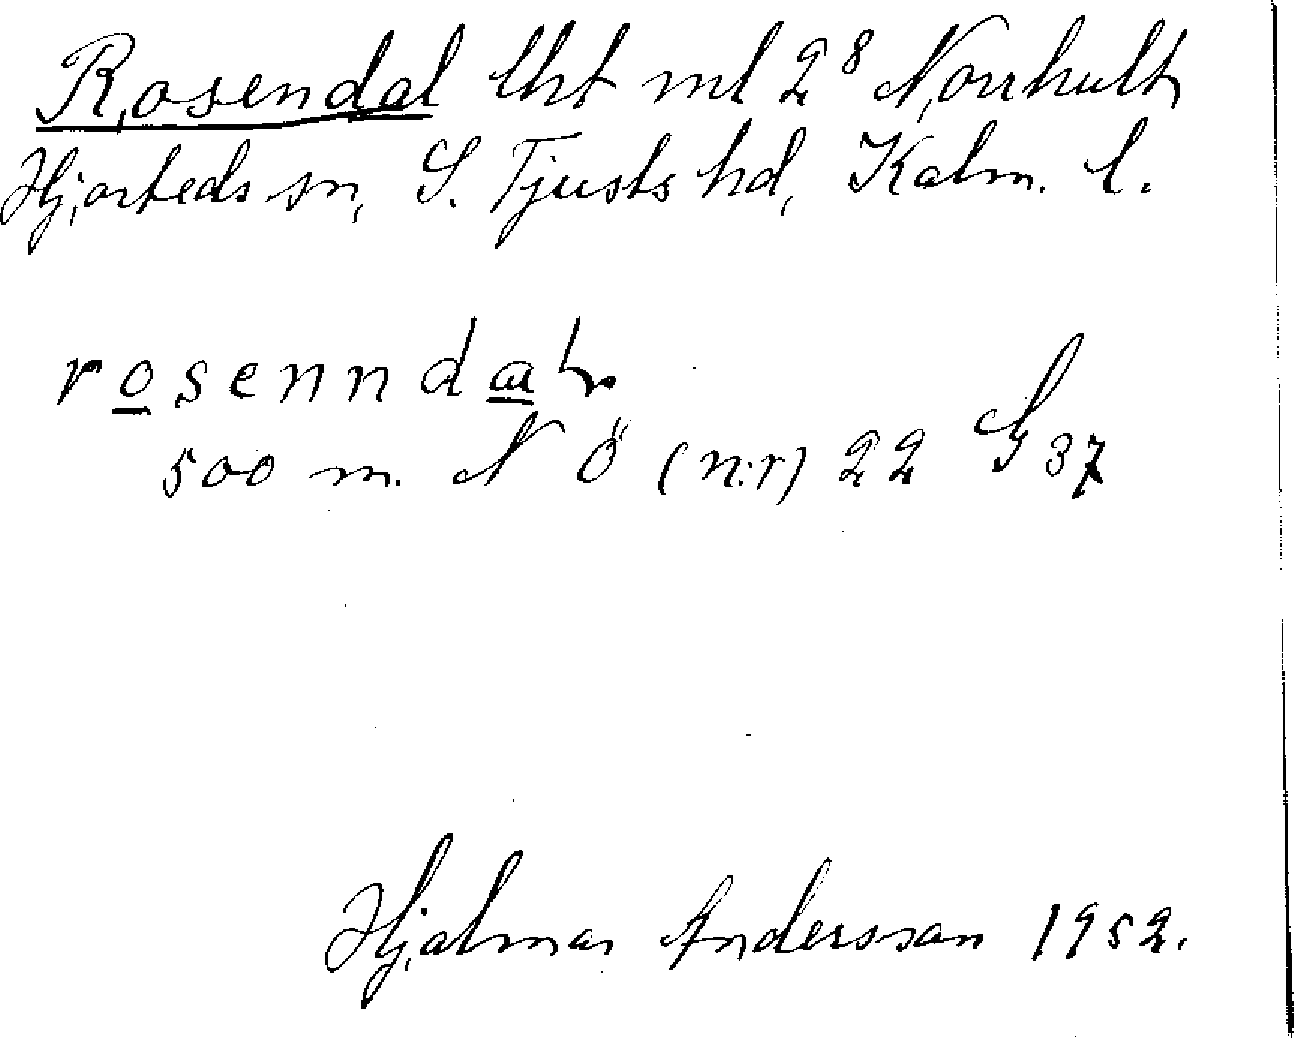 Rosendal lht ml 2⁸ Norrhult,
Hjorteds sn, S. Tjusts hd, Kalm. l.
rosenndal
500 m. N Ö (n:r) 22 S 37
Hjalmar Andersson 1952.